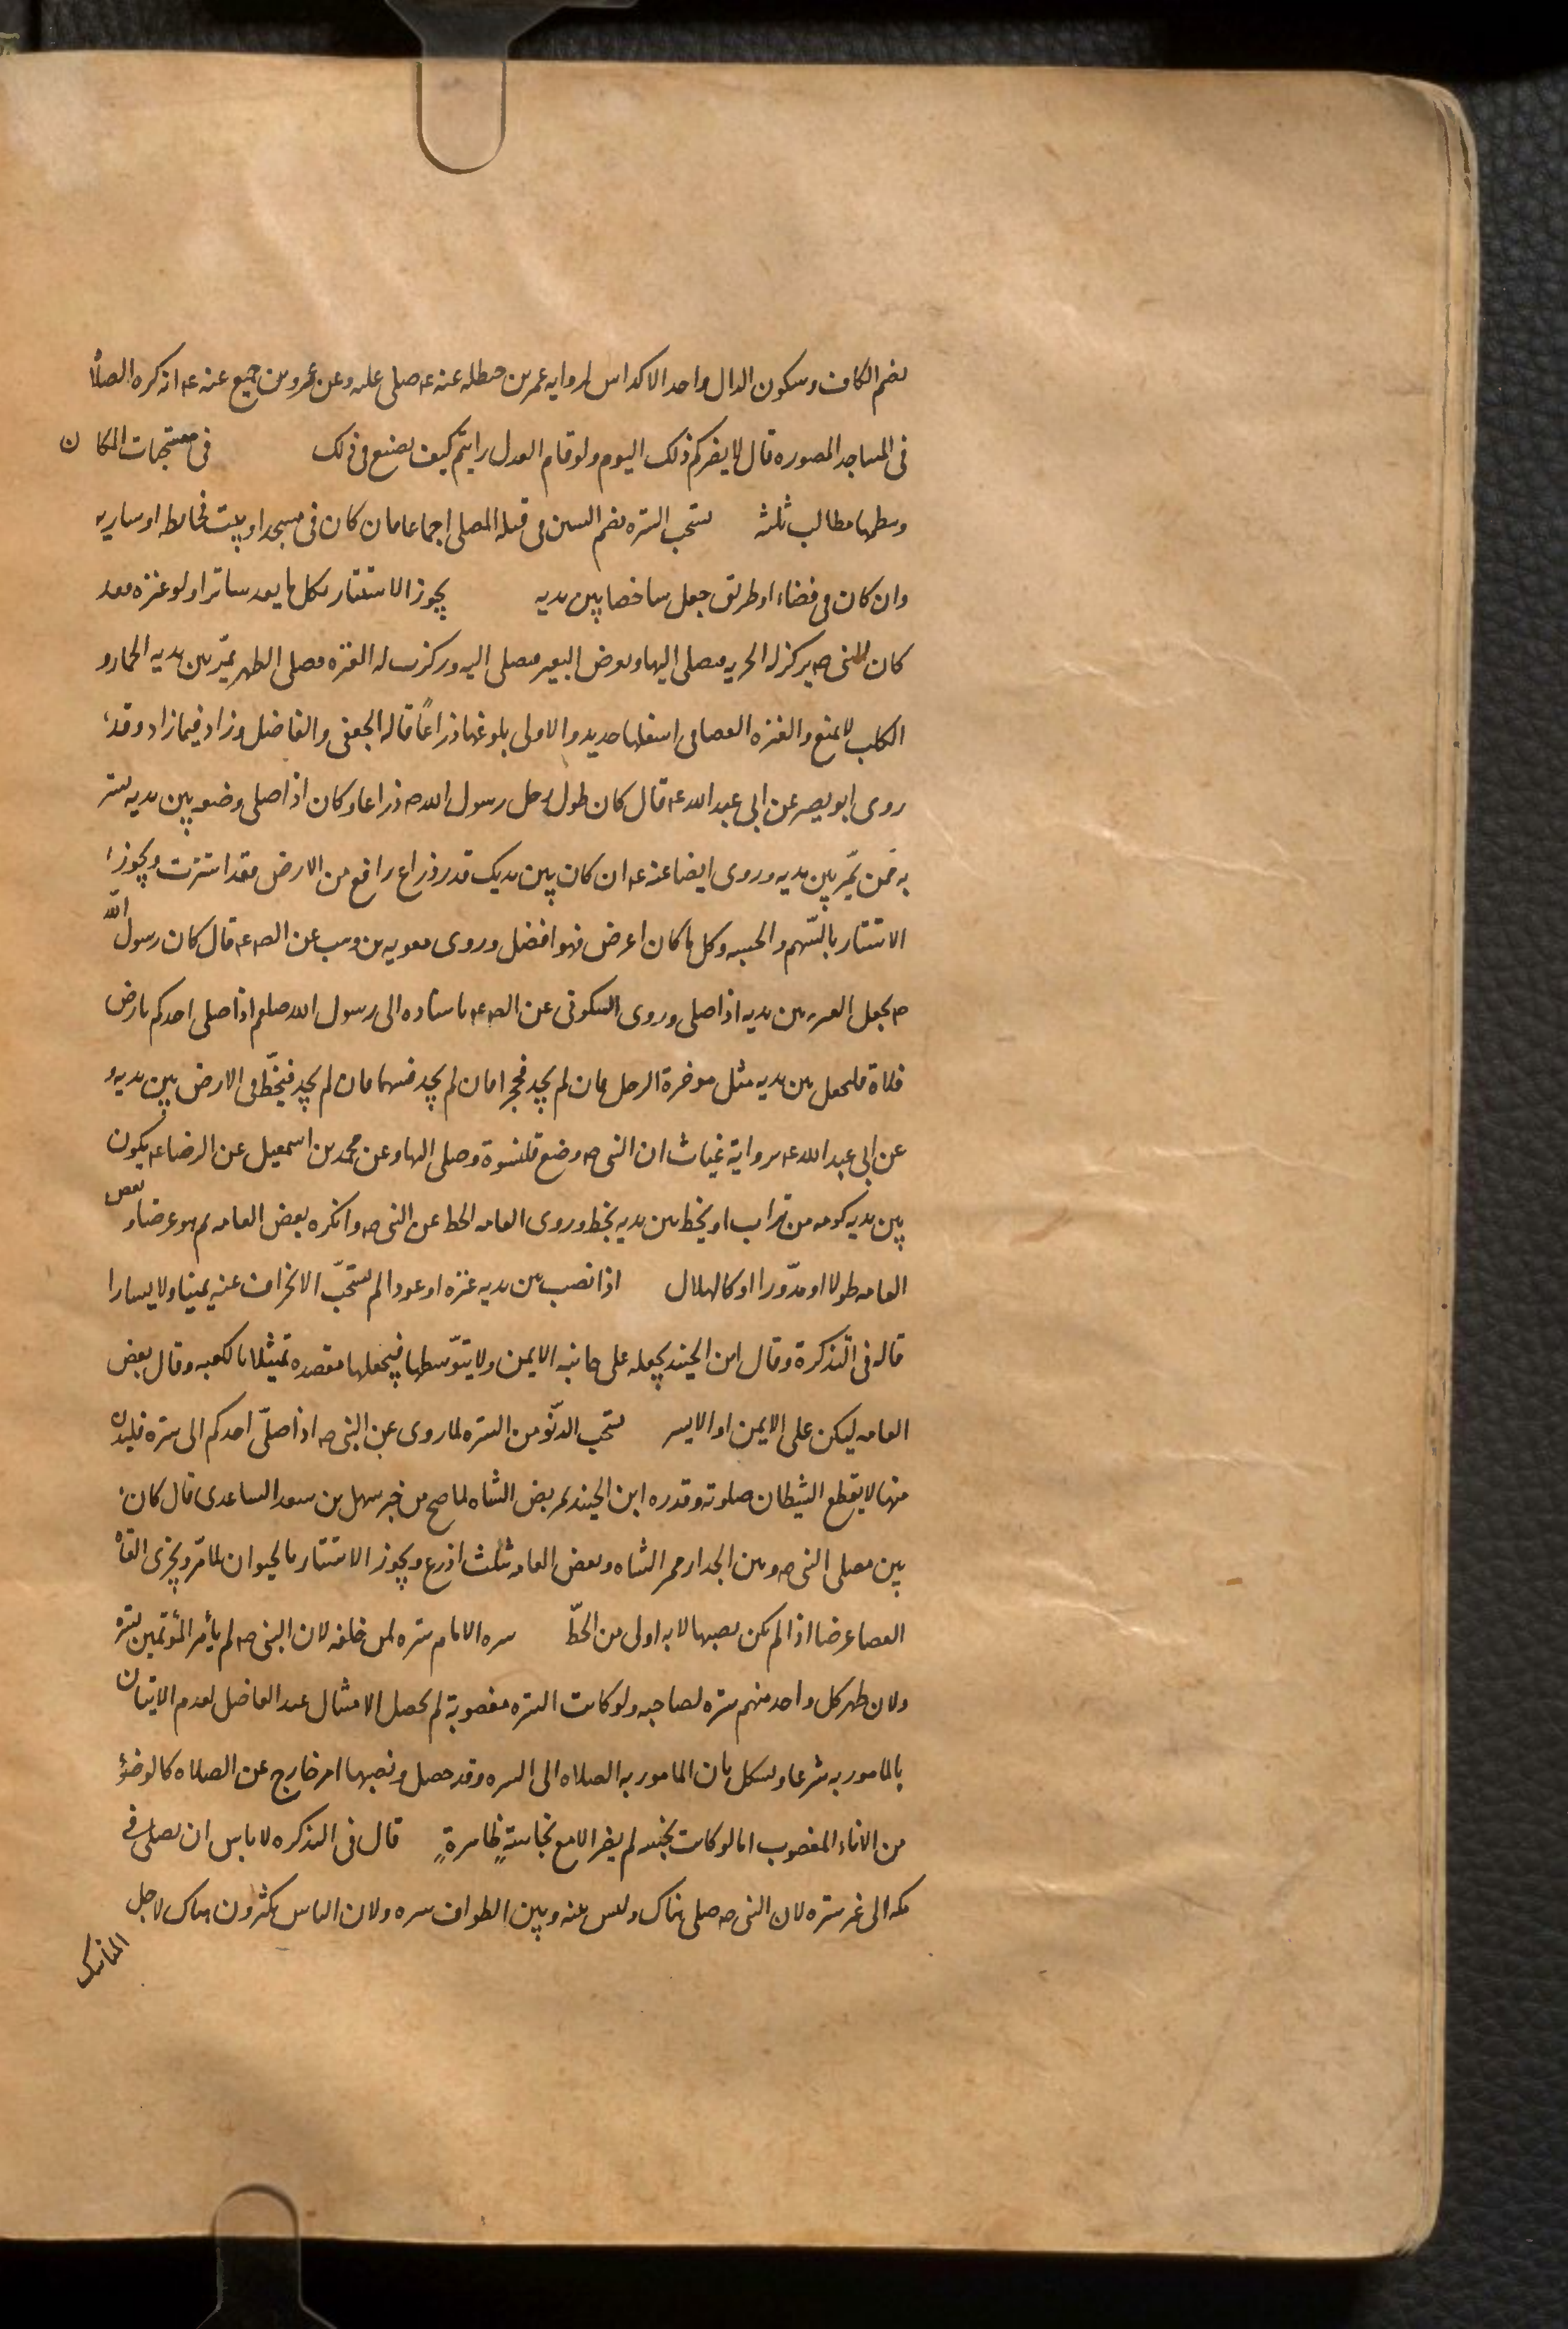 بضم الكاف وسكون الدال واحد الاكداس لروايه عمر بن حنظله عنه عه صلى عليه وعن عمرو بن جميع عنه عه انه كره الصلاة
فى المساجد المصوره قال لا يضركم ذلك اليوم ولو قام العدل رايتم كيف يصنع فى ذلك فى مستحبات المكان
وسطها مطالب ثلثة يستحب الستره بضم السين فى قبله المصلى اجماعا فان كان فى مسجد او بيت فحائط او ساريه
وان كان فى فضاء او طريق جعل شاخصا بين يديه يجوز الاستتار بكل ما يعد ساترا ولو عنزه فقد
كان للنبى صه يركز له الحربه فيصلى اليها ويعرض البعير فيصلى اليه وركزت له العنزه فصلى الظهر يمرّ بين يديه الحمار و
الكلب لا يمنع والعنزه العصا فى اسفلها حديد والاولى بلوغها ذراعاً قاله الجعفى والفاضل وزاد فيما زاد وقد
روى ابو بصير عن ابى عبد الله عه قال كان طول رحل رسول الله صه ذراعا وكان اذا صلى وضعه بين يديه يستتر
به ممن يمرّ بين يديه وروى ايضا عنه عه ان كان بين يديك قدر ذراع رافع من الارض فقد استترت ويجوز
الاستتار بالسّهم والخشبه وكل ما كان اعرض فهو افضل وروى معويه بن وهب عن الصه عه قال كان رسول الله
صه يجعل العنزه بين يديه اذا صلى وروى السكونى عن الصه عه باسناده الى رسول الله صلعم اذا صلى احدكم بارض
فلاة فليجعل بين يديه مثل موخرة الرحل فان لم يجد فحجرا فان لم يجد فسهما فان لم يجد فيخطّ فى الارض بين يديه و
عن ابى عبد الله عه برواية غياث ان النبى صه وضع قلنسوة وصلى اليها وعن محمد بن اسمعيل عن الرضا عه يكون
بين يديه كومه من تراب او يخط بين يديه بخط وروى العامه الخط عن النبى صه وانكره بعض العامه ثم هو عرضا وبعض
العامه طولا او مدّورا او كالهلال اذا نصب بين يديه عنزه او عودا لم يستحبّ الانحراف عنه يمينا ولا يسارا
قاله فى التذكرة وقال ابن الجنيد يجعله على جانبه الايمن ولا يتوّسطها فيجعلها مقصده تمثيلا بالكعبه وقال بعض
العامه ليكن على الايمن او الايسر يستحب الدنّو من الستره لما روى عن النبى صه اذا صلّى احدكم الى ستره فليدن
منها لا يقطع الشيطان صلوته وقدره ابن الجنيد بمربض الشاه لما صح من خبر سهل بن سعد الساعدى قال كان
بين مصلى النبى صه وبين الجدار ممر الشاه وبعض العامه ثلث اذرع ويجوز الاستتار بالحيوان لما مرّ ويجزى القاء
العصا عرضا اذا لم يكن نصبها لانه اولى من الخطّ ستره الامام ستره لمن خلفه لان النبى صه لم يأمر المؤتمين بستره
ولان ظهر كل واحد منهم ستره لصاحبه ولو كانت الستره مغصوبة لم يحصل الامتثال عند الفاضل لعدم الاتيان
بالمامور به شرعا ويشكل بان المامور به الصلاه الى الستره وقد حصل ونصبها امر خارج عن الصلاه كالوضؤ
من الاناء المغصوب اما لو كانت نجسه لم يضر الا مع نجاسةٍ ظاهرةٍ قال فى التذكره لا باس ان يصلى فى
مكه الى غير ستره لان النبى صه صلى هناك وليس بينه وبين الطواف ستره ولان الناس يكثرون هناك لاجل
المناسك